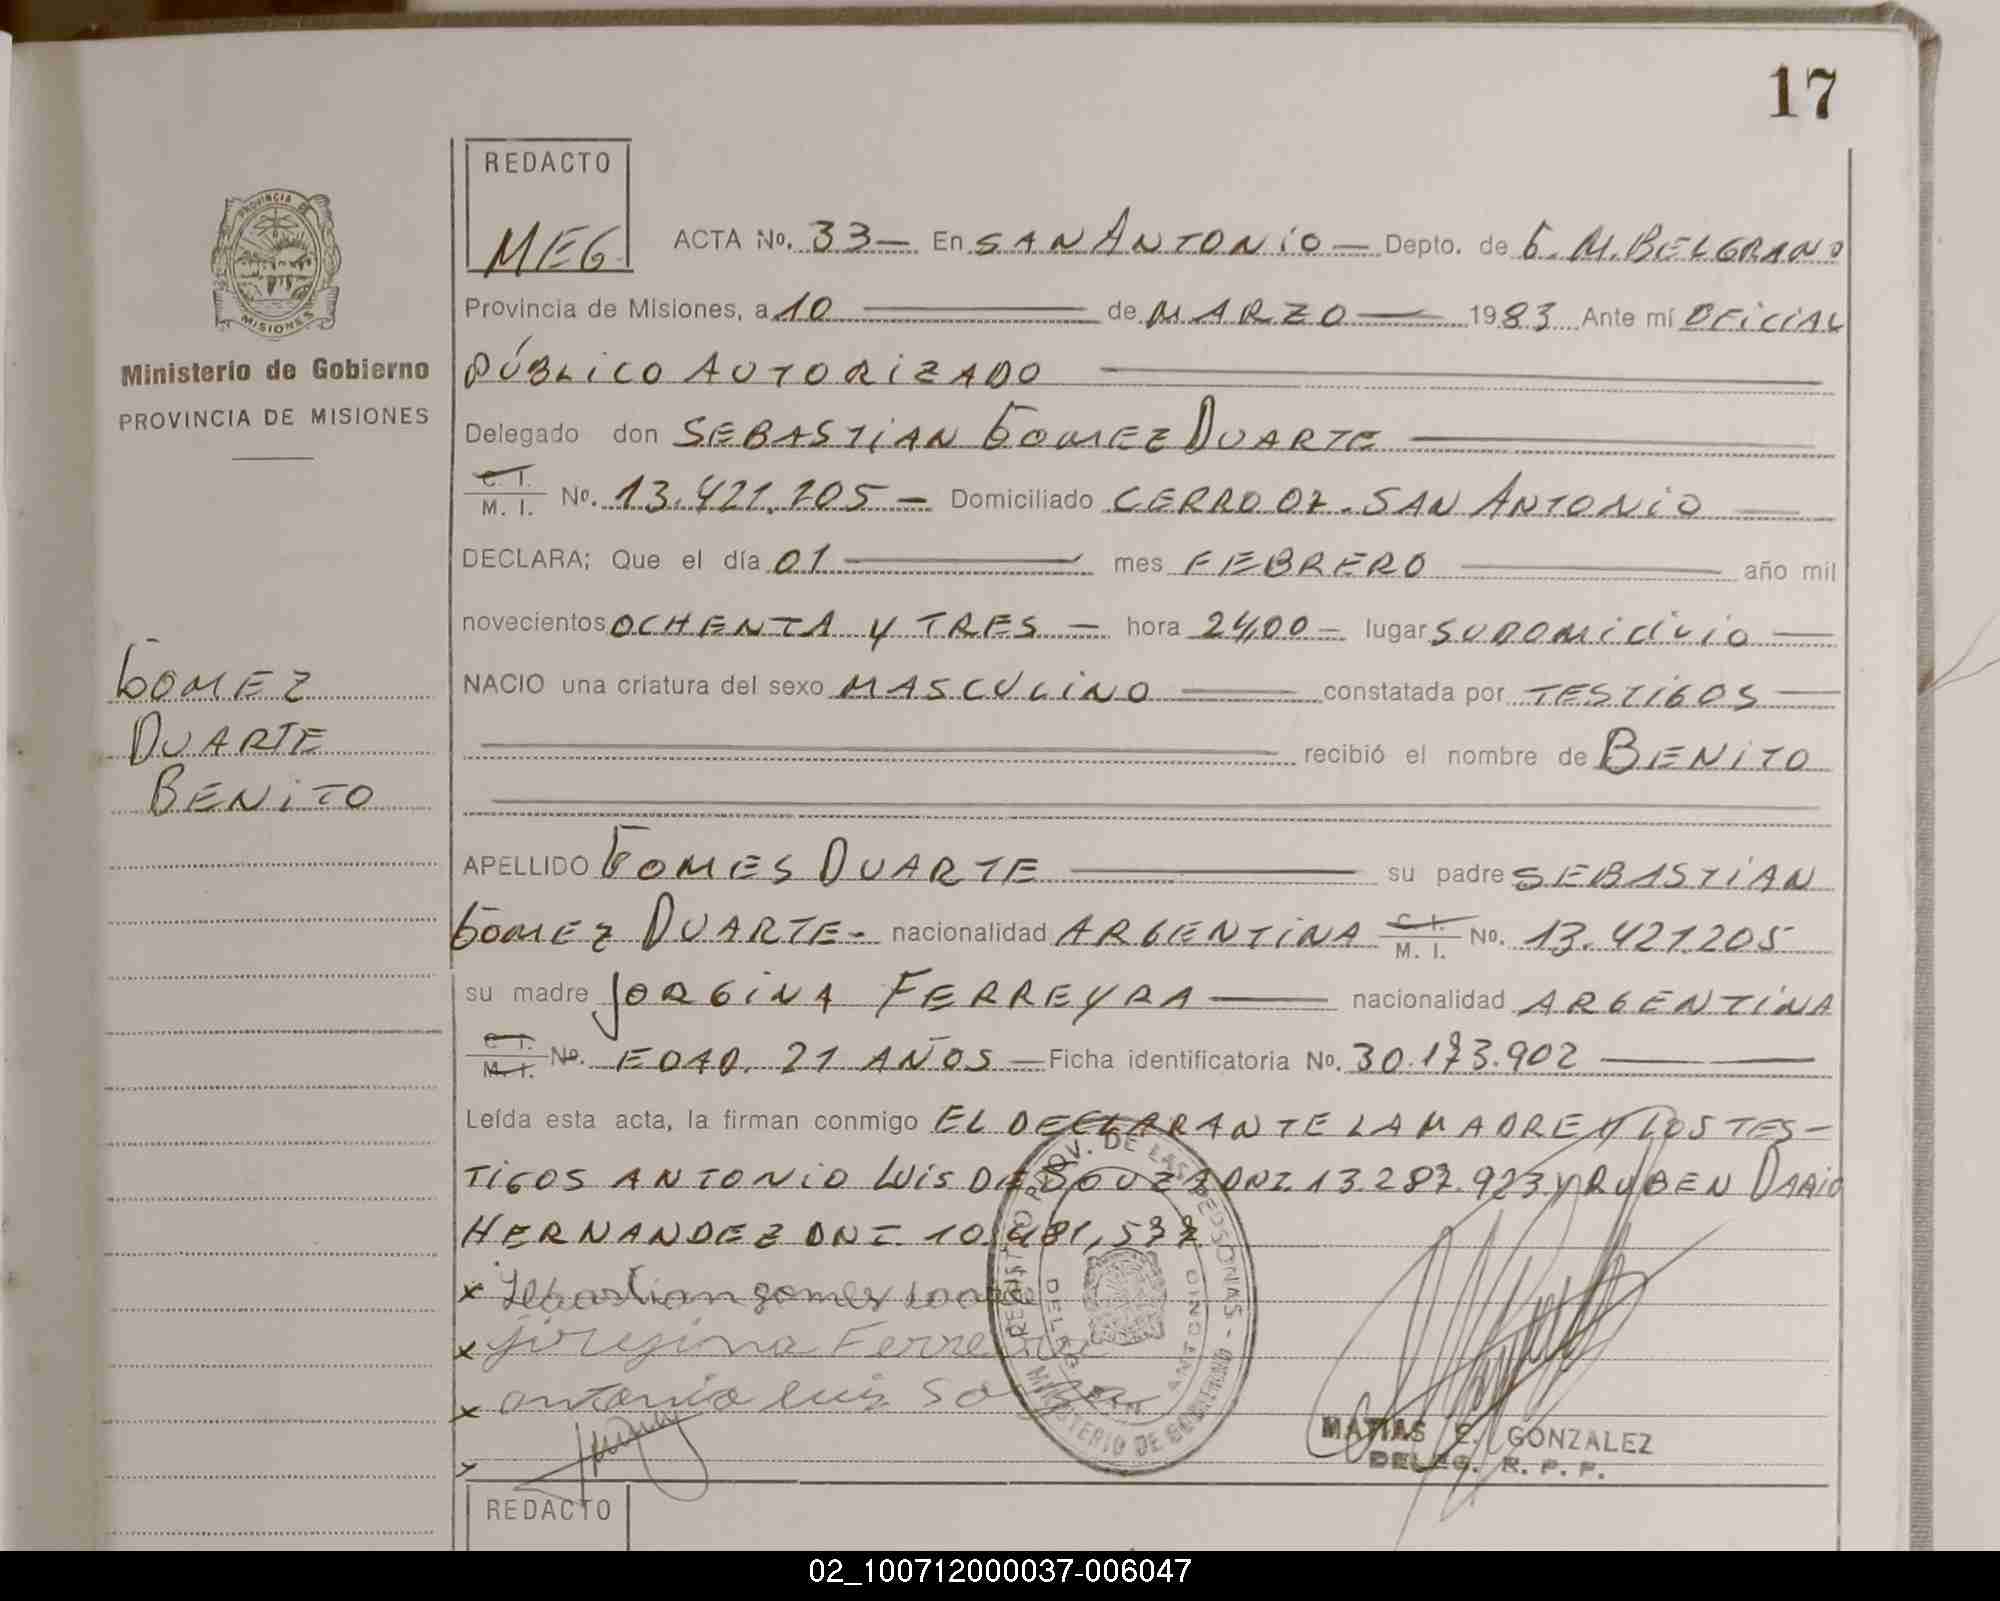 17
REDACTO
MEG
PROVINCIA DE
MISIONES
Ministerio de Gobierno
PROVINCIA DE MISIONES
GOMEZ
DUARTE
BENITO
ACTA No. 33 — En SAN ANTONIO — Depto. de G. M. BELGRANO
Provincia de Misiones, a 10 — de MARZO — 1983 Ante mí OFICIAL
PÚBLICO AUTORIZADO —
Delegado don SEBASTIAN GOMEZ DUARTE —
C. I. / M. I. No. 13.421.205 — Domiciliado CERRO 07. SAN ANTONIO —
DECLARA; Que el día 01 — mes FEBRERO — año mil
novecientos OCHENTA Y TRES — hora 24,00 — lugar SU DOMICILIO —
NACIO una criatura del sexo MASCULINO — constatada por TESTIGOS —
— recibió el nombre de BENITO
APELLIDO GOMES DUARTE — su padre SEBASTIAN
GOMEZ DUARTE - nacionalidad ARGENTINA C. I. / M. I. No. 13.421.205
su madre JORGINA FERREYRA — nacionalidad ARGENTINA
C. I. / M. I. No. EDAD. 21 AÑOS — Ficha identificatoria No. 30.173.902 —
Leída esta acta, la firman conmigo EL DECLARANTE LA MADRE Y LOS TES-
TIGOS ANTONIO LUIS DE SOUZA DNI. 13.287.923 Y RUBEN DARIO
HERNANDEZ DNI. 10.481,577
x Sebastian gomez
x Ferre
x antonio luis So
x
REGISTO PROV. DE LAS PERSONAS - MINISTERIO DE GOBIERNO
SAN ANTONIO
MATIAS E. GONZALEZ
DELEG. R. P. P.
REDACTO
02_100712000037-006047